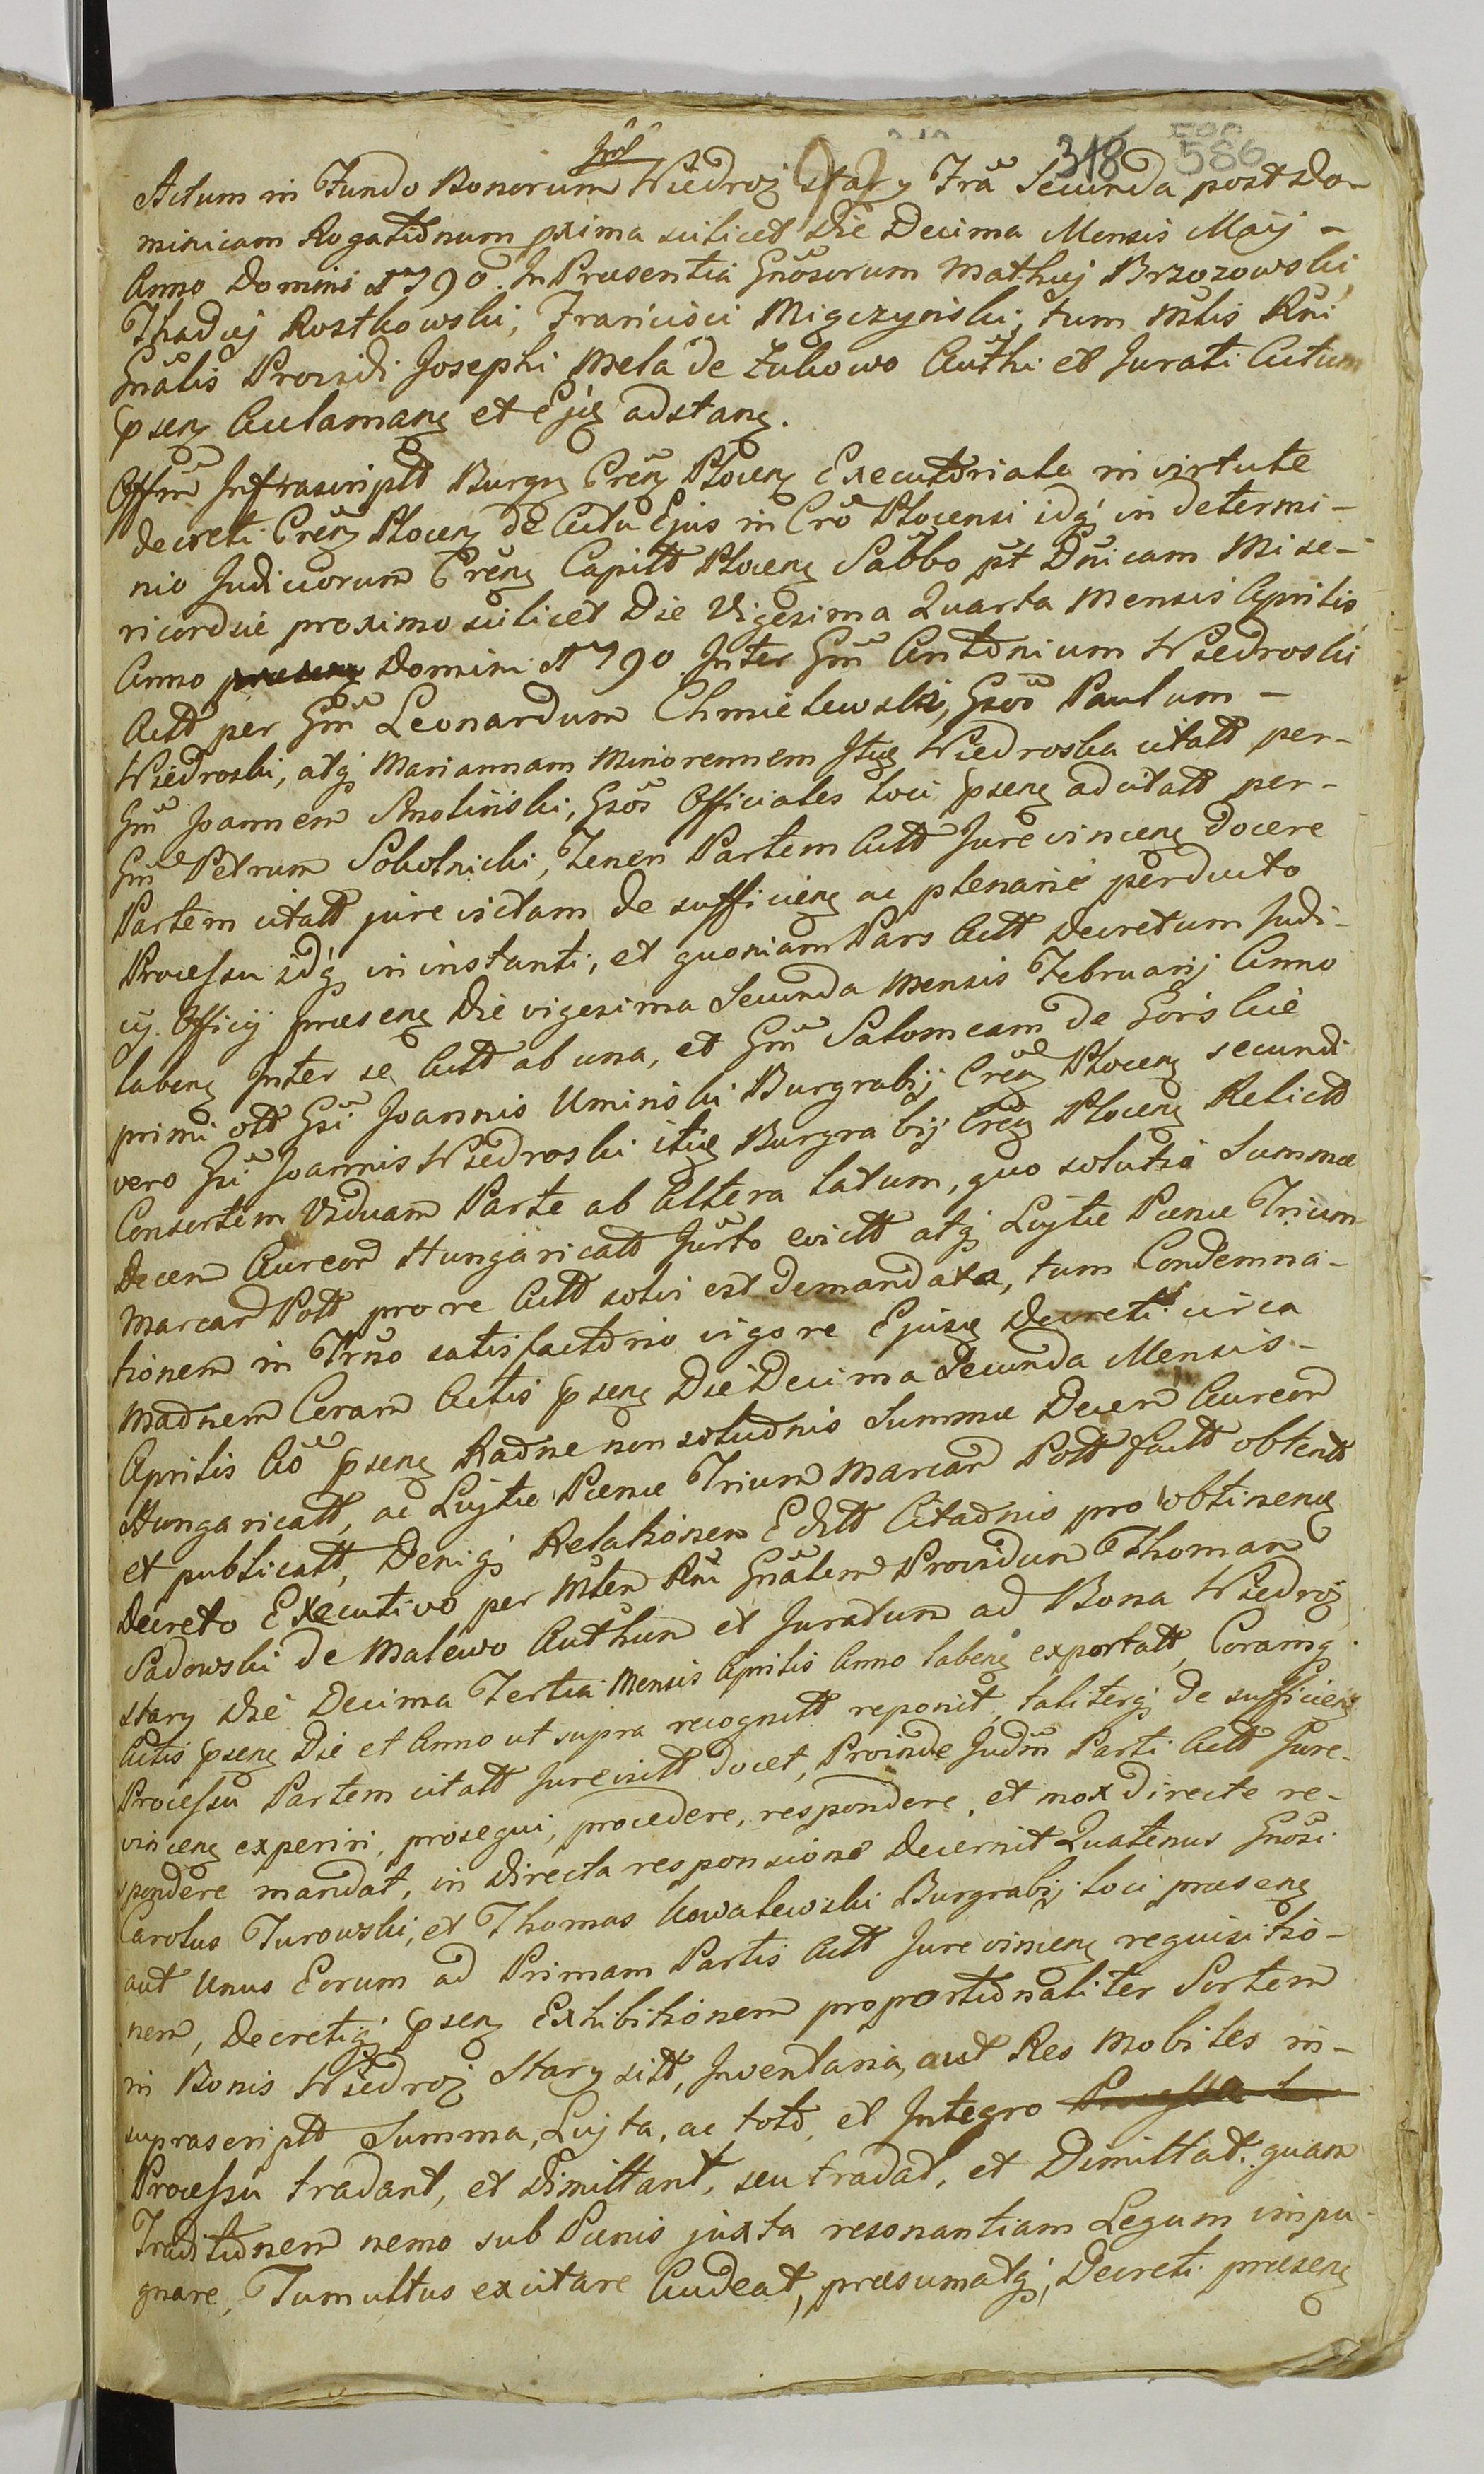 318 586
Actum in Fundo Bonorum Wiedroż Stary Fra Secunda post Do-
minicam Rogationum pxima scilicet Die Decima Mensis Maij -
Anno Domini 1790. In Praesentia Gnosorum Mathej Brzozowski,
Thadej Rostkowski, Francisci Migczyński, tum Mlis Rni
Gnalis Providi Josephi Mela de Zukowo Authi et Jurati Actum
psens Acclamans et Ejus adstans.
Offm Infrascriptt Burgs Crens Plocens Executoriale in virtute
decreti Crens Plocens de Actu Ejus in Cro Plocensi idq in determi-
nio Judiciorum Crens Capitt Plocens Sabbo pt Dnicam Mise-
ricordie proximo scilicet Die Vigesima Quarta Mensis Aprilis
Anno Domini 1790 Inter Gm Antonium Wiedroski
Actt per Gm Leonardum Chmielewski, Gsos Paulum -
Wiedroski, atq Mariannam Minorennem Itus Wiedroska citatt per-
Gm Joannem Smoliński, Gsos Officiales loci psens adcitatt per-
Gm Petrum Sokolnicki, Tenen Partem Actt Jurevincens docere
Partem citatt jure victam de sufficiens ac plenarie perducto
Processu idq in instanti, et quoniam Pars Actt Decretum Judi-
cij Officij praesens Die vigesima Secunda Mensis Februarij Anno
labens Inter se Actt ab una, et Gm Salomeam de Gorskie
primi ott Gsi Joannis Umiński Burgrabij Crens Plocens secundi
vero Gsi Joannis Wiedroski itus Burgrabij Crens Plocens Relictt
Consortem Viduam Parte ab Altera latum, quo solutio Summae
Decem Aureor Hungaricatt Jurto evictt atq Lujtae Paenae Trium
Marcar Pott pro re Actt solvi est demandata, tum Condemna-
tionem in Trno satisfactorio vigore Ejusq Decreti circa
Madnem Ceram Actis psens Die Decima Secunda Mensis -
Aprilis Ao psens Radne non solutionis Summae Decem Aureor
Hungaricatt, ac Lujtae Paenae Trium Marcar Pott factt obtentt
et publicatt, Deniq Relationem Editt Citadnis pro obtinens
Decreto Executivo per Mlem Rni Gnalem Providum Thomam
Sadowski de Malewo Authum et Juratum ad Bona Wiedroż
Stary Die Decima Tertia Mensis Aprilis Anno labens exportatt, Coramq
Actis psens Die et Anno ut supra recognitt reponit, taliterq de sufficiens
Processu Partem citatt Jurevictt docet, Proinde Judm Parti Actt Jure-
vincens experiri, prosequi, procedere, respondere, et mox directe re-
spondere mandat, in directa responsione Decernit Quatenus Gnosi
Carolus Turowski, et Thomas Kowalewski Burgrabij loci praesens
aut Unus Eorum ad Primam Partis Actt Jurevincens requisitio-
nem, Decretiq psens Exhibitionem proportionaliter Sortem
in Bonis Wiedroż Stary sitt, Inventaria, aut Res Mobiles in-
suprascriptt Summa, Lujta, ac toto, et Integro
Processu tradant, et dimittant, seu tradat, et Dimittat. quam
Traditionem nemo sub Paenis juxta resonantiam Legum impu-
gnare, Tumultus excitare Audeat, praesumatq, Decreti praesens